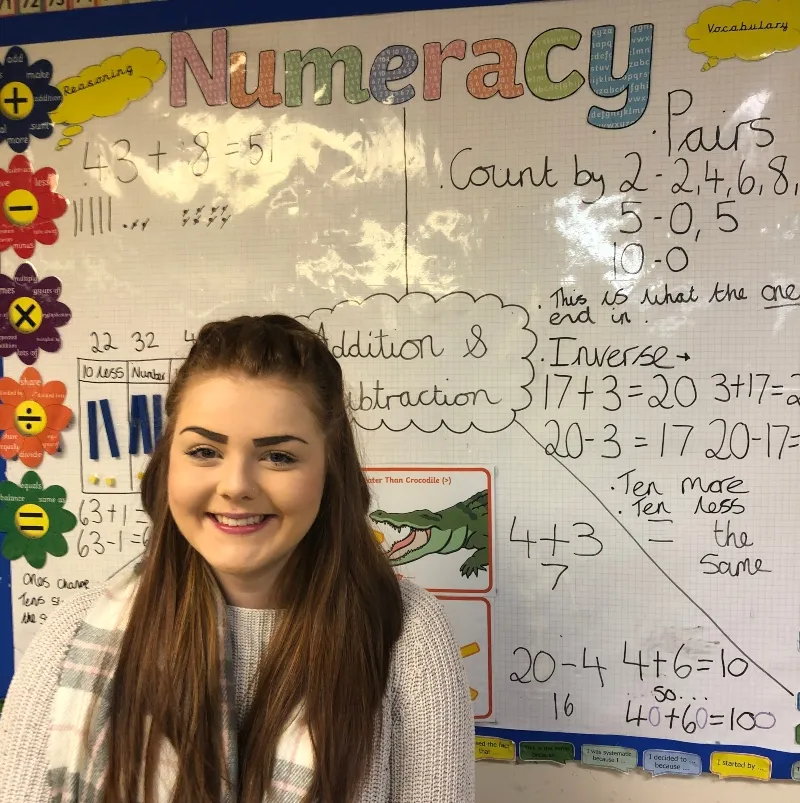 Numeracy
Vocabulary
Reasoning
43 + 8 = 51
Pairs
Count by 2 - 2, 4, 6, 8,
5 - 0, 5
10 - 0
This is what the one
end in.
add
make
addition
sum
more
less
minus
Addition &
btraction
Inverse →
17 + 3 = 20 3 + 17 = 2
20 - 3 = 17 20 - 17 =
Ten more
Ten less
22 32 4
10 less Number
share
divide
equals
balance same as
63 + 1 =
63 - 1 = 6
Ones change
Tens s
the s
ater Than Crocodile (>)
4 + 3 = the
7 same
20 - 4 4 + 6 = 10
16 so...
40 + 60 = 100
I was systematic
because I ...
I decided to ...
because ...
I started by ...